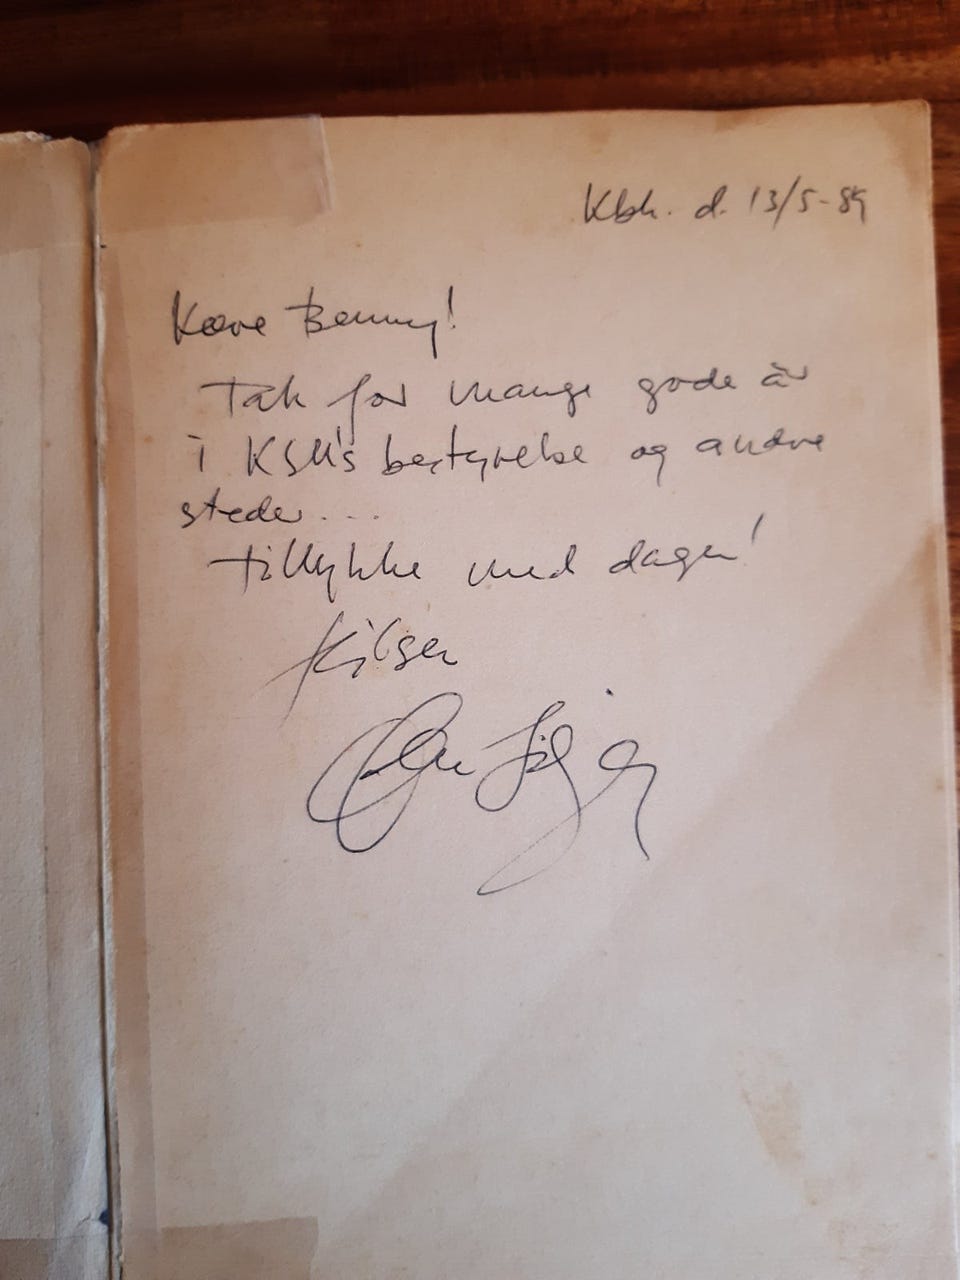 Kbh. d. 13/5-89
Kære Benny!
Tak for mange gode år
i KSM's bestyrelse og andre
steder...
Tillykke med dagen!
Hilsen